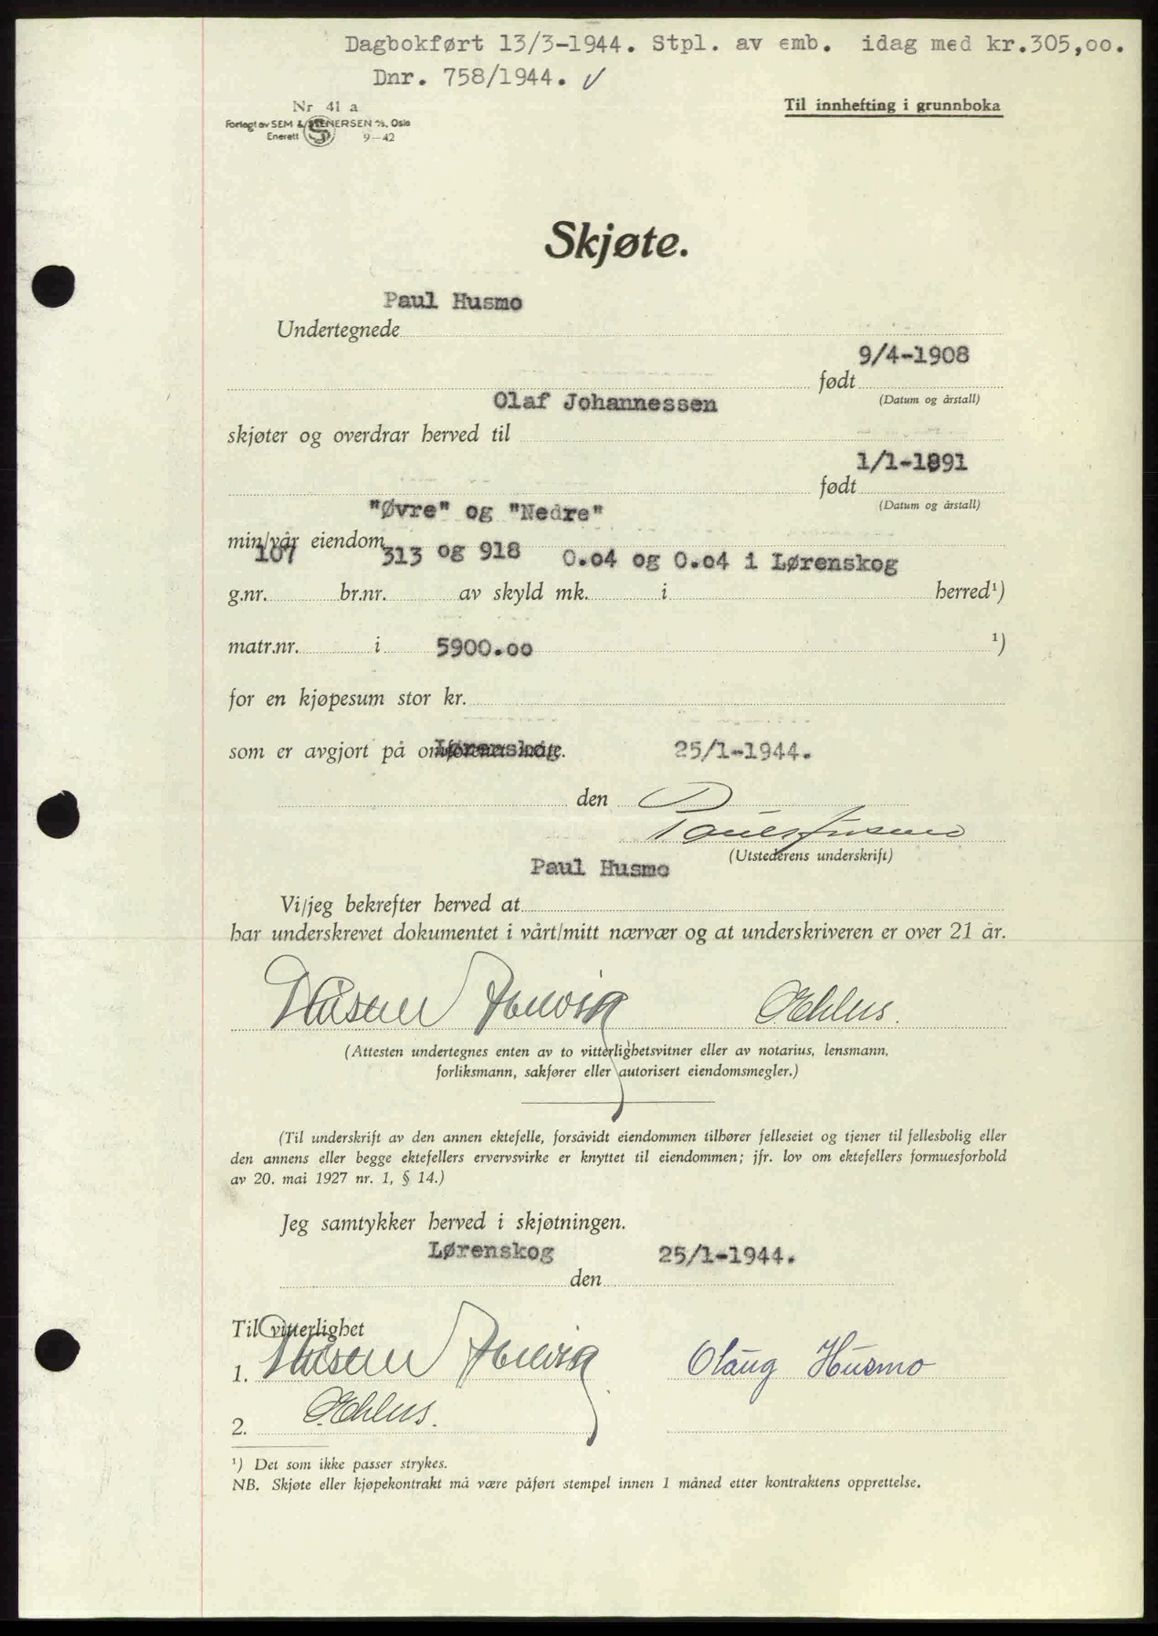 Dagbokført 13/3-1944. Stpl. av emb. idag med kr.305,00.
Dnr. 758/1944. ✓
Nr 41 a
Til innhefting i grunnboka
Forlagt av SEM & STENERSEN A/S, Oslo
Enerett 9-42
Skjøte.
Paul Husmo
Undertegnede
9/4-1908
født
(Datum og årstall)
Olaf Johannessen
skjøter og overdrar herved til
1/1-1891
født
(Datum og årstall)
"Øvre" og "Nedre"
min/vår eiendom
107 313 og 918 0.04 og 0.04 i Lørenskog
g.nr. br.nr. av skyld mk. i herred¹)
matr.nr. i 5900.00 ¹)
for en kjøpesum stor kr.
som er avgjort på Lørenskog 25/1-1944.
den
Paul Husmo
(Utstederens underskrift)
Paul Husmo
Vi/jeg bekrefter herved at
har underskrevet dokumentet i vårt/mitt nærvær og at underskriveren er over 21 år.
(Attesten undertegnes enten av to vitterlighetsvitner eller av notarius, lensmann,
forliksmann, sakfører eller autorisert eiendomsmegler.)
(Til underskrift av den annen ektefelle, forsåvidt eiendommen tilhører felleseiet og tjener til fellesbolig eller
den annens eller begge ektefellers ervervsvirke er knyttet til eiendommen; jfr. lov om ektefellers formuesforhold
av 20. mai 1927 nr. 1, § 14.)
Jeg samtykker herved i skjøtningen.
Lørenskog 25/1-1944.
den
Til vitterlighet
1. Olaug Husmo
2.
¹) Det som ikke passer strykes.
NB. Skjøte eller kjøpekontrakt må være påført stempel innen 1 måned etter kontraktens opprettelse.